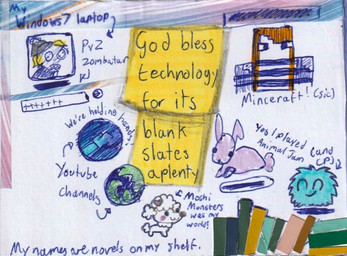 My
Windows 7 laptop
PvZ
Zombatar
God bless
technology
for its
blank
slates
aplenty
Minceraft! (sic)
++++++
We're holding hands!
Youtube
Channels
Yes I played
Animal Jam
(and
CP)
Moshi
Monsters
was my
world!
My names are novels on my shelf.